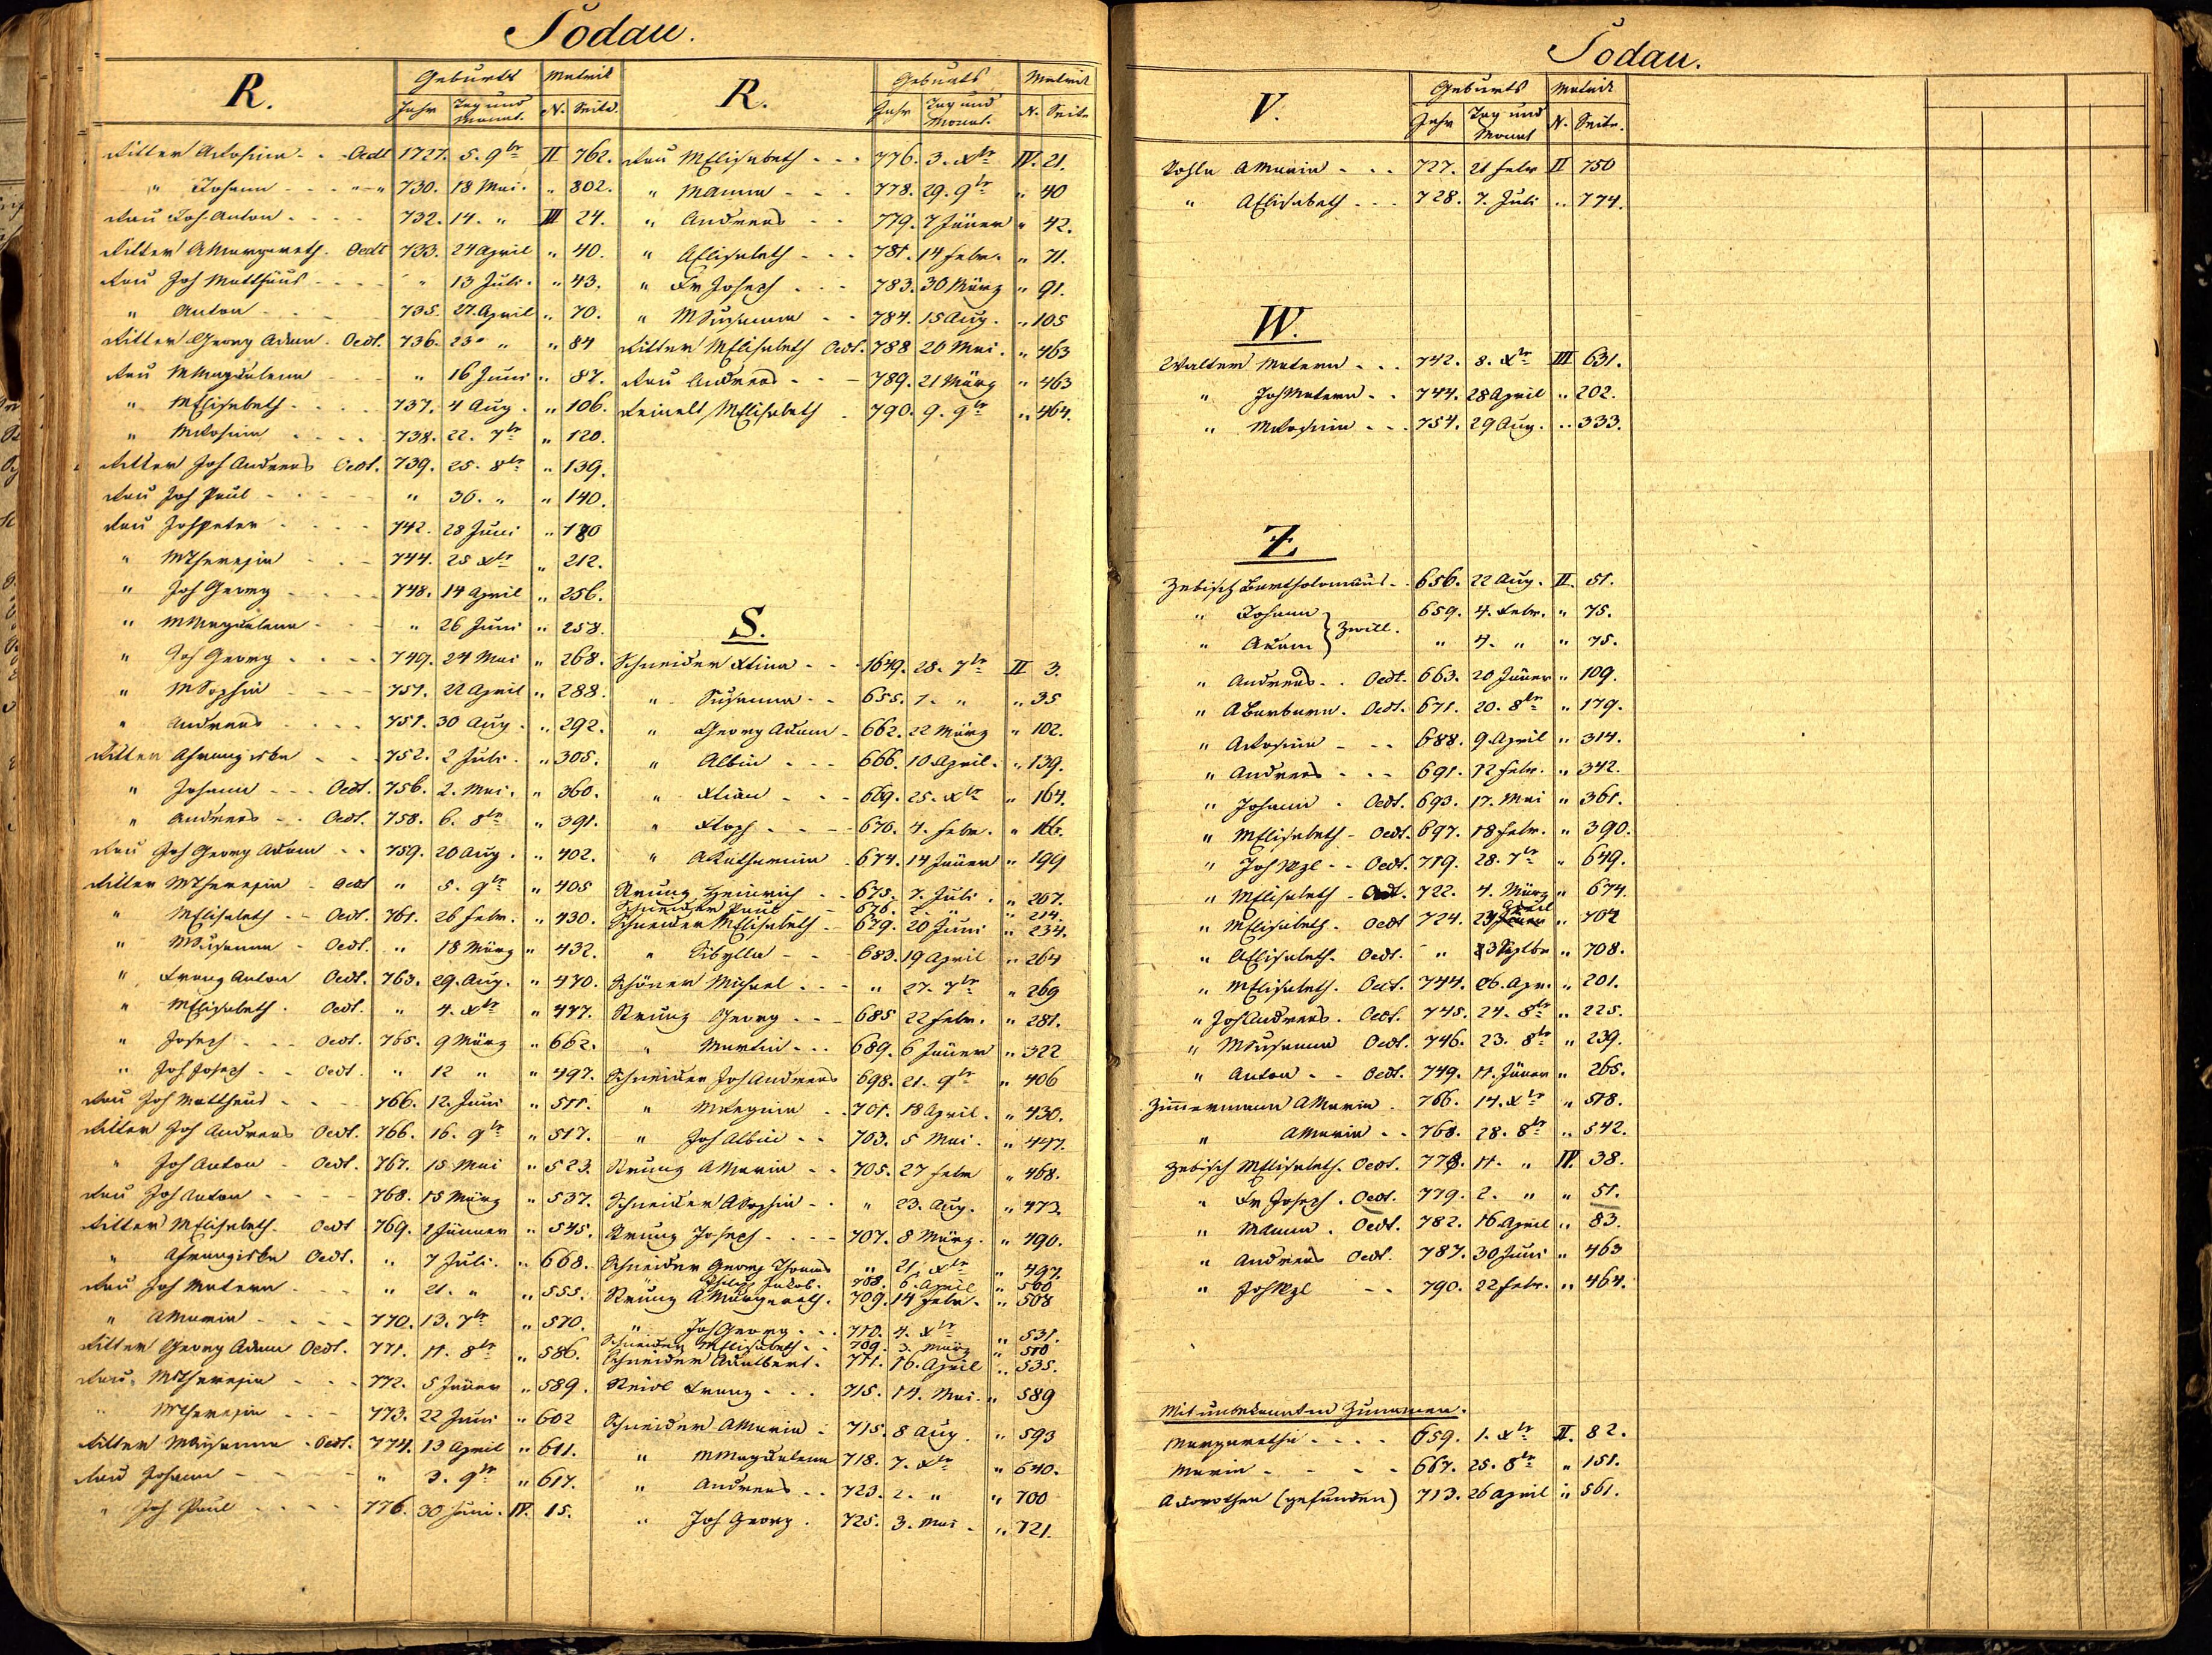 Sodau.
R. Geburts Matrik
Jahr Tag und Monat. N. Seite.
Ritter ARosina - - Oedt 1727. 5. 9br II 762.
" Johann - - - " - " 730. 18 Mai. " 802.
Rau Joh. Anton - - - - 732. 14. " III 24.
Ritter AMargareth. Oedt 733. 24 April " 40.
Rau Joh Matthäus - - - - " 13 Juli. " 43.
" Anton - - - 735. 27. April " 70.
Ritter Georg Adam. Oedt. 736. 23 " " 84
Rau MMagdalena - - " 16 Juni " 87.
" MElisabeth - - - - 737. 4 Aug. " 106.
" MRosina - - - - 738. 22. 7br " 120.
Ritter Joh Andreas Oedt. 739. 25. 8br " 139.
Rau Joh Paul - - - - " 30. " " 140.
Rau Joh Peter - - - - 742. 28 Juni " 180
" MTheresia - - - 744. 25 Xbr " 212.
" Joh Georg - - - - 748. 14 April " 256.
" MMagdalena - - - " 26 Juni " 258.
" Joh Georg - - - - 749. 24 Mai " 268.
" MSophia - - - - 751. 22 April " 288.
" Andreas - - - - 751. 30 Aug. " 292.
Ritter AFranziska - - - 752. 2 Juli. " 305.
" Johann - - - Oedt. 756. 2. Mai. " 360.
" Andreas - - Oedt. 758. 6. 8br " 391.
Rau Joh Georg Adam - - 759. 20 Aug. " 402.
Ritter MTheresia - Oedt " 5. 9br " 405
" MElisabeth - - Oedt. 761. 26 Febr. " 430.
" MSusanna - Oedt. " 18 März " 432.
" Franz Anton Oedt. 763. 29. Aug. " 470.
" MElisabeth. Oedt. " 4. Xbr " 477.
" Joseph - - - Oedt. 765. 9 März " 662.
" Joh Joseph - - Oedt. " 12 " " 497.
Rau Joh Matthäus - - - 766. 12. Juni " 511.
Ritter Joh Andreas Oedt. 766. 16. 9br " 517.
" Joh Anton - Oedt. 767. 15 Mai " 523.
Rau Joh Anton - - - - 768. 15 März " 537.
Ritter MElisabeth. Oedt 769. 2 Jänner " 545.
" AFranziska Oedt. " 7 Juli. " 668.
Rau Joh Matern - - " 21. " " 555.
" AMaria - - - - 770. 13. 7br " 570.
Ritter Georg Adam Oedt. 771. 11. 8br " 586.
Rau MTheresia - - - 772. 5 Jäner " 589.
" MTheresia - - - 773. 22 Juni " 602
Ritter MSusanna. Oedt. 774. 13 April " 611.
Rau Johann - - - - " 3. 9br " 617.
" Joh Paul - - - - 776. 30 Juni. IV. 15.
R. Geburts Matrik
Jahr Tag und Monat. N. Seite
Rau MElisabeth - - - 776. 3. Xbr IV. 21.
" MAnna - - - 778. 29. 9br " 40
" Andreas - - 779. 7 Jäner " 42.
" AElisabeth - - - 781. 14 Febr. " 71.
" Fr Joseph - - - 783. 30 März " 91.
" MSusanna - - 784. 15 Aug. " 105
Ritter MElisabeth Oedt. 788 20 Mai. " 463
Rau Andreas - - - 789. 21 März " 463
Reinelt MElisabeth - 790. 9. 9br " 464.
S.
Schneider Xtina - - - 1649. 28. 7br II 3.
" Susanna - - 655. 1. " " 35
" Georg Adam - 662. 22 März " 102.
" Albin - - - 666. 10 April. " 139.
" Xtian - - - 669. 25. Xbr " 164.
" Xtoph - - - 670. 4. Febr. " 166.
" AKatharina - 674. 14 Jäner " 199
Strunz Heinrich - - 675. 7. Juli. " 207.
Schneider Paul - - 676. 2. " " 214.
Schneider MElisabeth - 679. 20 Juni " 234.
" Sibylla - - 683. 19 April " 264
Schöner Michael - - - " 27. 7br " 269
Strunz Georg - - - 685 22 Febr. " 281.
" Martin - - - 689. 6 Jäner " 322
Schneider Joh Andreas 698. 21. 9br " 406
" MRegina - - 701. 18 April. " 430.
" Joh Albin - - 703. 5 Mai. " 447.
Strunz AMaria - - 705. 27 Febr " 468.
Schneider ASophia - - " 23. Aug. " 473
Strunz Joseph - - - - 707. 8 März. " 490.
Schneider Georg Thomas " 21. Xbr " 497.
Philipp Jakob. 708. 6. April " 500
Strunz AMargareth. 709. 14 Febr. " 508
" Joh Georg - - - 710. 4. Xbr " 531.
Schneider MElisabeth - - 709. 3. März " 510
Schneider Adalbert. 711. 16. April " 535.
Steidl Franz - - - 715. 14. Mai. " 589
Schneider AMaria - 715. 8 Aug. " 593
" MMagdalena 718. 7. Xbr " 640.
" Andreas - - 723. 2. " " 700
" Joh Georg. 725. 3. Mai - " 721.
Sodau.
V. Geburts Matrik
Jahr Tag und Monat N. Seite.
Vohla AMaria - - - 727. 21 Febr II 750
" AElisabeth - - - 728. 7. Juli " 774.
W.
Walter Matern - - - 742. 8. Xbr III 631.
" Joh Matern - - 744. 28 April " 202.
" MRosina - - - 754. 29 Aug. " 333.
Z
Zebisch Bartholomäus - - 656. 22 Aug. II. 51.
" Johann } Zwill. 659. 4. Febr. " 75.
" Adam " 4. " " 75.
" Andreas - - Oedt. 663. 20 Jäner " 109.
" ABarbara. Oedt. 671. 20. 8br " 179.
" ARosina - - - 688. 9 April " 314.
" Andreas - - - 691. 12 Febr. " 342.
" Johann - Oedt. 693. 17. Mai " 361.
" MElisabeth - Oedt. 697. 18 Febr. " 390.
" Joh Wzl - - Oedt. 719. 28. 7br " 649.
" MElisabeth - Oedt. 722. 4. März " 674.
" MElisabeth. Oedt 724. 23 April " 702
" AElisabeth. Oedt. " 3 Septbr " 708.
" MElisabeth. Oedt. 744. 06. Apr. " 201.
" Joh Andreas. Oedt. 745. 24. 8br " 225.
" MSusanna Oedt. 746. 23. 8br " 239.
" Anton - - Oedt. 749. 11. Jäner " 265.
Zimermann AMaria. 766. 14. Xbr " 518.
" AMaria - - 768. 28. 8br " 542.
Zebisch MElisabeth. Oedt. 778. 11. " IV. 38.
" Fr Joseph. Oedt. 779. 2. " " 51.
" MAnna. Oedt. 782. 16 April " 83.
" Andreas Oedt. 787. 30 Juni " 463
" Joh Wzl - - 790. 22 Febr. " 464.
Mit unbekannten Zunamen.
Margaretha - - - - 659. 1. Xbr II. 82.
Maria - - - - 667. 25. 8br " 151.
ADorothea (gefunden) 713. 26 April " 561.